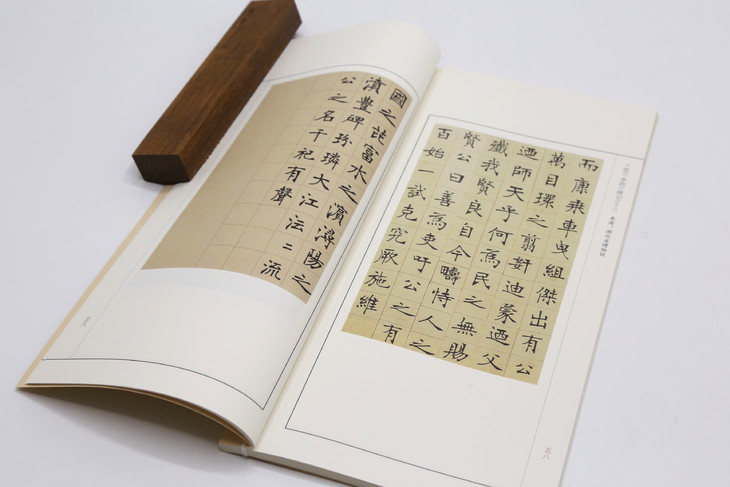 而康乘車曳組傑出有公
萬目環之翦奸迪蒙迺父
迺師天乎何爲民之無賜
殲我賢良自今疇恃人之
賢公曰善爲吏吁公之有
百始一試克究厥施維
五八
國之芘富水之濱潯陽之
濆豐碑玢璘大江沄〻流
公之名千祀有聲